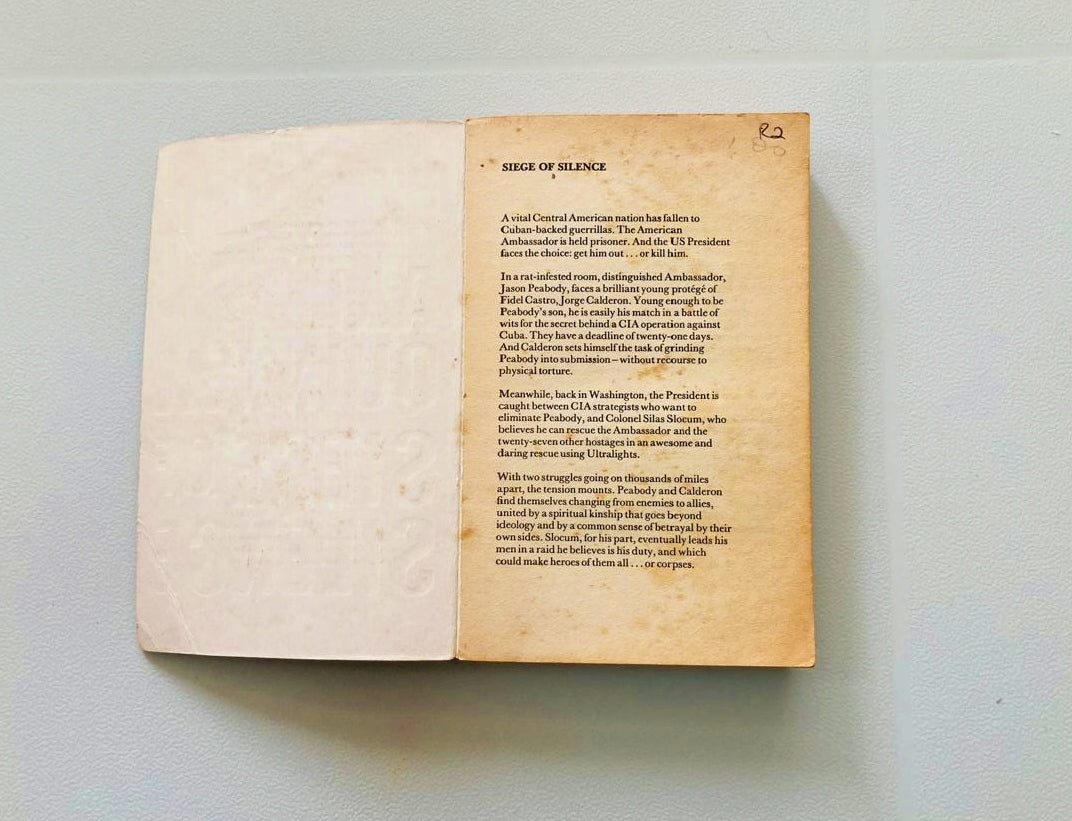 R2
SIEGE OF SILENCE
A vital Central American nation has fallen to
Cuban-backed guerrillas. The American
Ambassador is held prisoner. And the US President
faces the choice: get him out . . . or kill him.
In a rat-infested room, distinguished Ambassador,
Jason Peabody, faces a brilliant young protégé of
Fidel Castro, Jorge Calderon. Young enough to be
Peabody's son, he is easily his match in a battle of
wits for the secret behind a CIA operation against
Cuba. They have a deadline of twenty-one days.
And Calderon sets himself the task of grinding
Peabody into submission – without recourse to
physical torture.
Meanwhile, back in Washington, the President is
caught between CIA strategists who want to
eliminate Peabody, and Colonel Silas Slocum, who
believes he can rescue the Ambassador and the
twenty-seven other hostages in an awesome and
daring rescue using Ultralights.
With two struggles going on thousands of miles
apart, the tension mounts. Peabody and Calderon
find themselves changing from enemies to allies,
united by a spiritual kinship that goes beyond
ideology and by a common sense of betrayal by their
own sides. Slocum, for his part, eventually leads his
men in a raid he believes is his duty, and which
could make heroes of them all . . . or corpses.